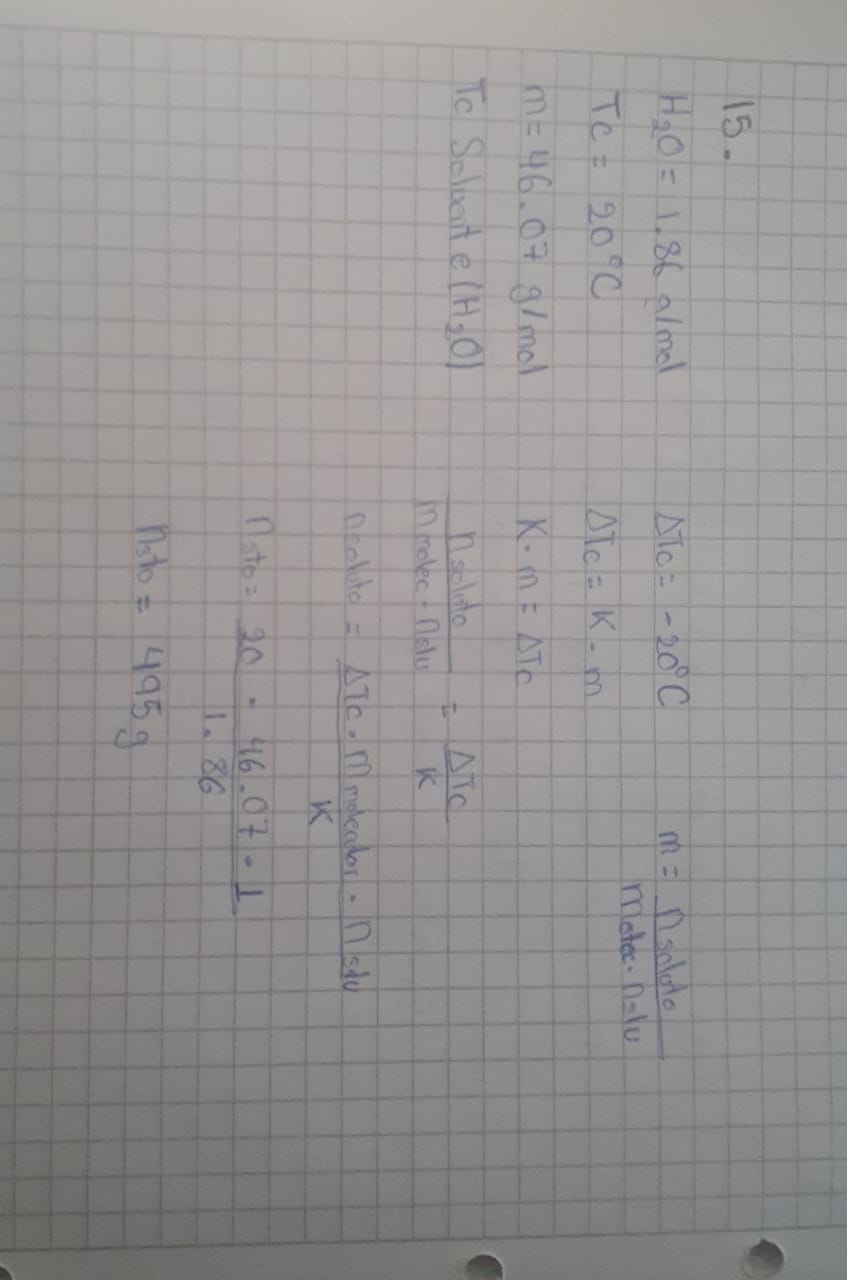 15.
H₂O = 1.86 g/mol
Tc = 20°C
m = 46.07 g/mol
Tc Solvente (H₂O)
ΔTc = -20°C
ΔTc = K · m
K · m = ΔTc
n soluto / M molec · n slu = ΔTc / K
n soluto = ΔTc · M molecular · n sdu / K
n sto = 20 · 46.07 · 1 / 1.86
n sto = 495 g
m = n soluto / M olec · n slu